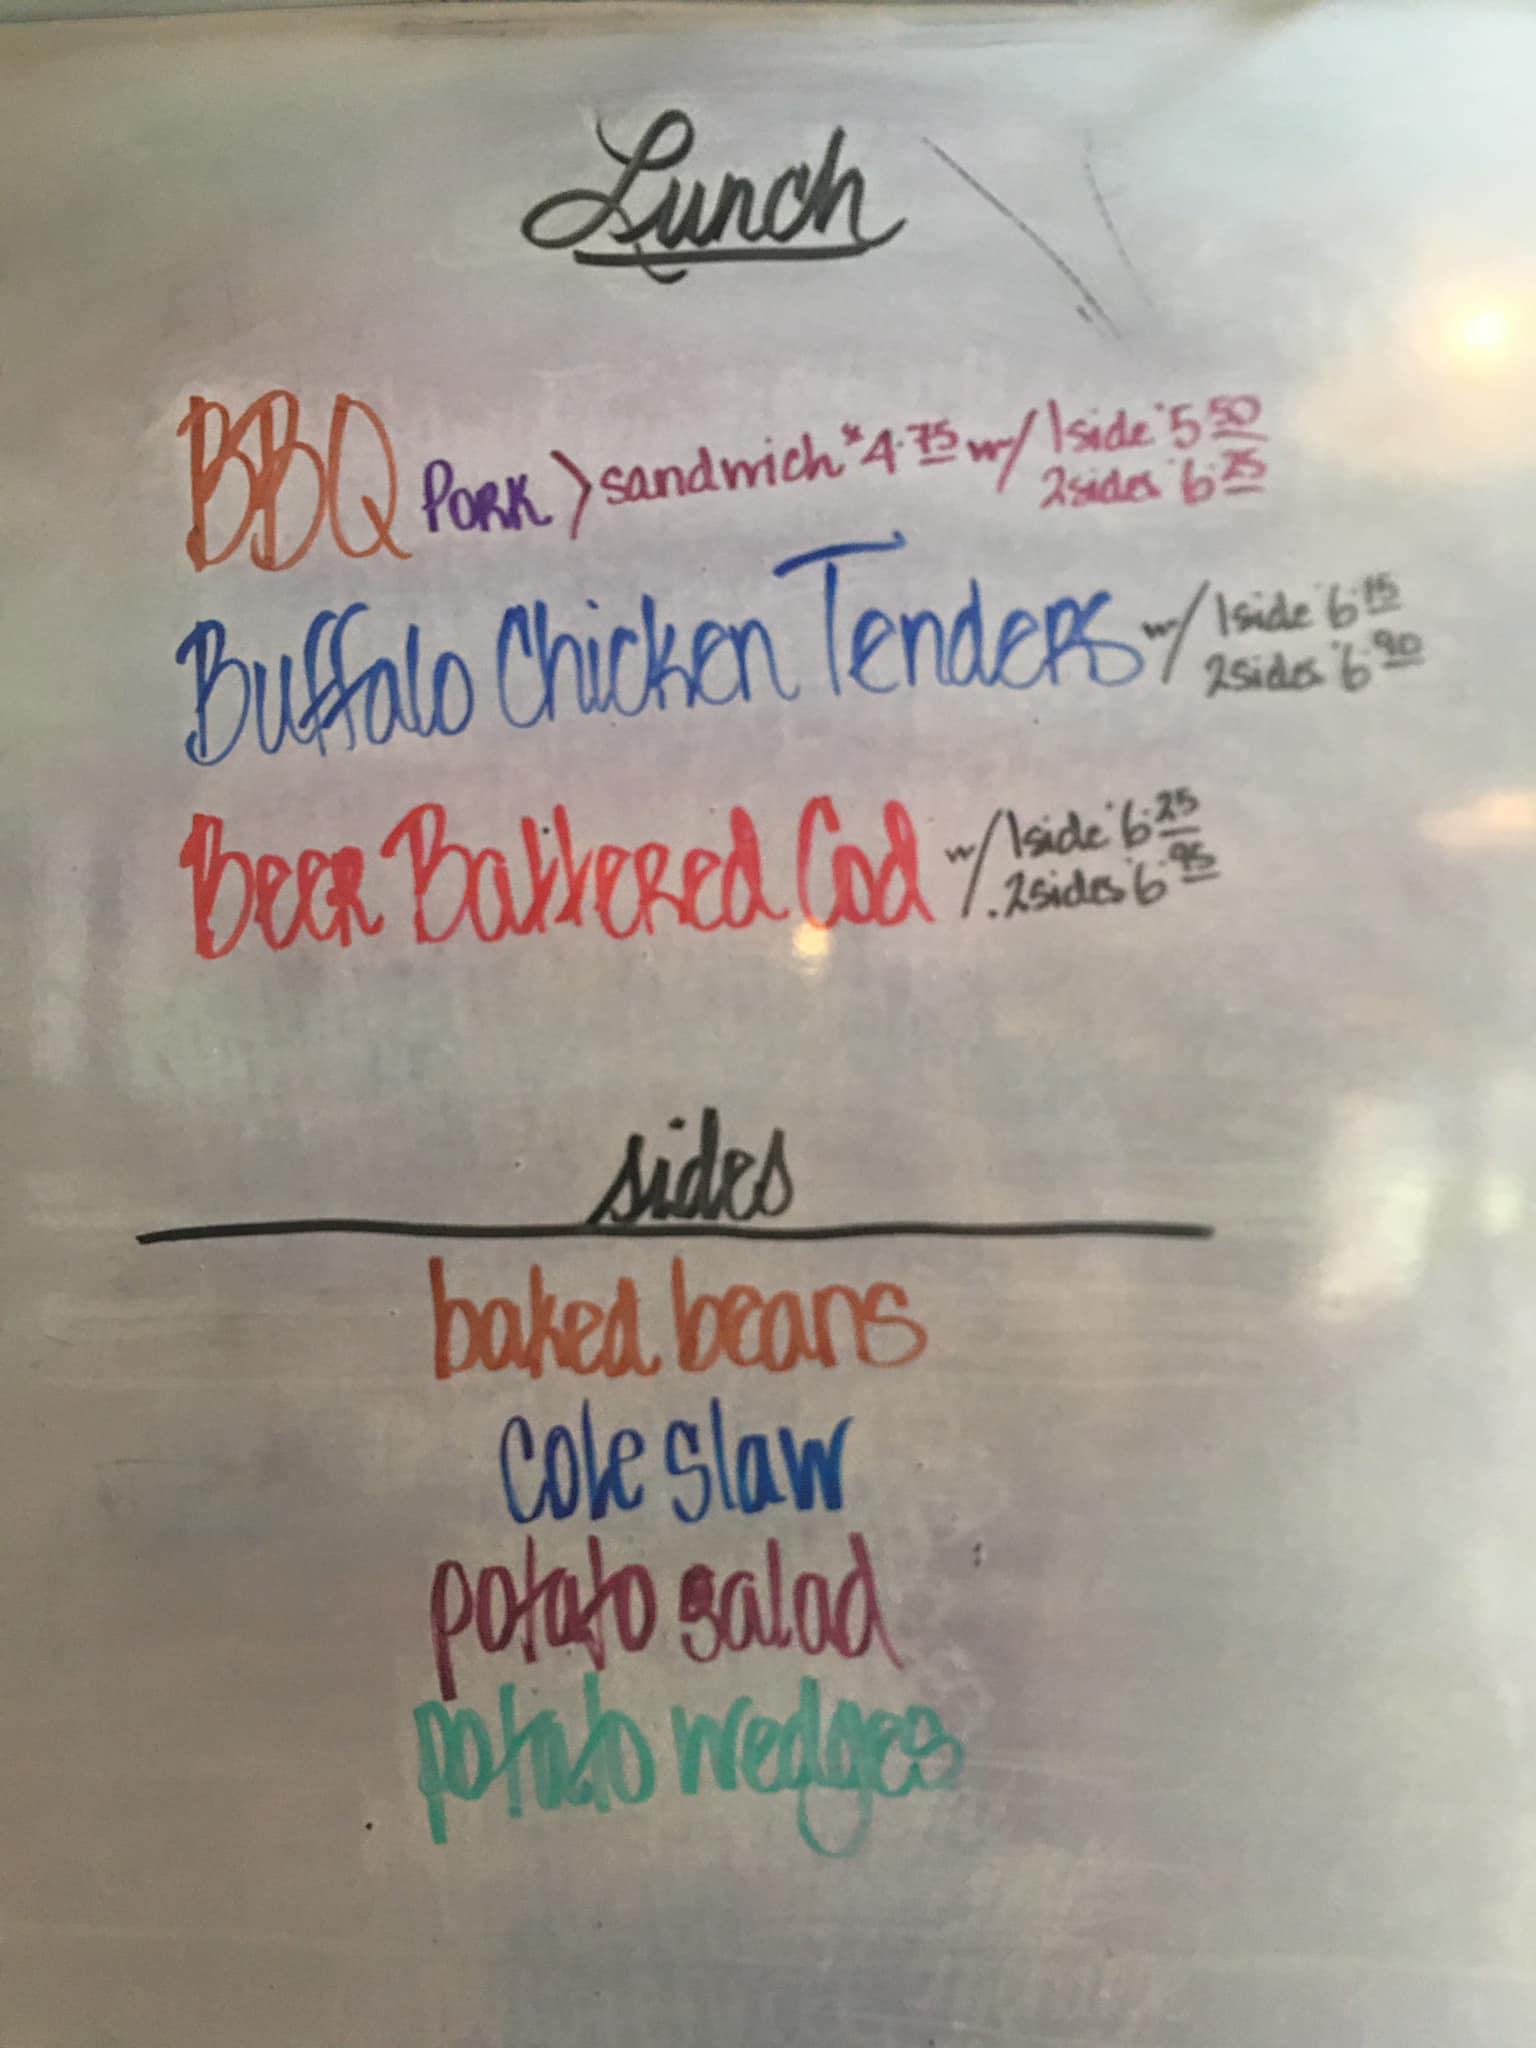 Lunch
BBQ Pork > sandwich $4.75 w/ 1side $5.50
2sides $6.25
Buffalo Chicken Tenders w/ 1side $6.15
2sides $6.90
Beer Battered Cod w/ 1side $6.25
2sides $6.95
sides
baked beans
cole slaw
potato salad
potato wedges